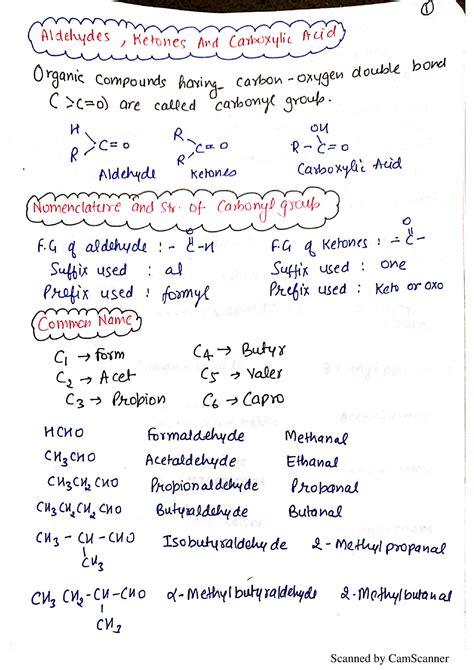 ①
Aldehydes, Ketones And Carboxylic Acid
Organic compounds having carbon-oxygen double bond
(>C=O) are called carbonyl group.
H R OH
>C=O >C=O R-C=O
R R
Aldehyde Ketones Carboxylic Acid
Nomenclature and Str. of Carbonyl group
O O
F.G of aldehyde :- -C-H F.G of Ketones :- -C-
Suffix used : al Suffix used : one
Prefix used : formyl Prefix used : Keto or oxo
Common Name
C1 → Form C4 → Butyr
C2 → Acet C5 → Valer
C3 → Propion C6 → Capro
HCHO Formaldehyde Methanal
CH3CHO Acetaldehyde Ethanal
CH3CH2CHO Propionaldehyde Propanal
CH3CH2CH2CHO Butyraldehyde Butanal
CH3-CH-CHO Isobutyraldehyde 2-Methylpropanal
CH3
CH3CH2-CH-CHO α-Methylbutyraldehyde 2-Methylbutanal
CH3
Scanned by CamScanner